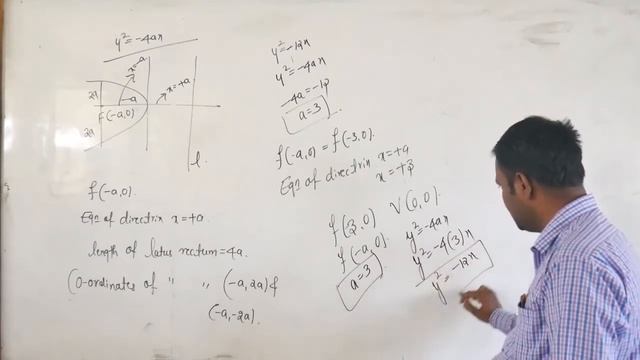 y² = -4ax
x = -a
x = +a
2a
-a
F(-a,0)
2a
l
f(-a,0).
Eqn of directrix x = +a.
length of latus rectum = 4a.
Co-ordinates of " " (-a, 2a) &
(-a, -2a).
y² = -12x
y² = -4ax
-4a = -12
a = 3
f(-a,0) = f(-3,0).
Eqn of directrix x = +a
x = +3
V(0,0).
f(-a,0).
a = 3
y² = -4ax
y² = -4(3)x
y² = -12x